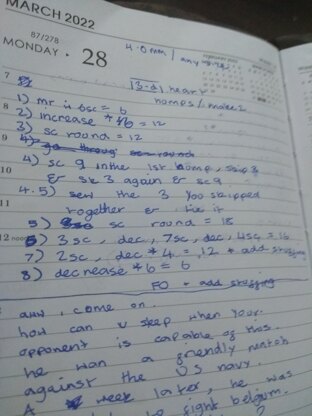 MARCH 2022
87/278
MONDAY · 28
4.0mm / any
7
13-di heart
1) mr in 6sc = 6
homes / make 2
8
2) increase * 6 = 12
3) sc round = 12
9
4) sc 9 in the 1st home, skip 3
10
& sk 3 again & sc 9
4.5) sew the 3 you skipped
11
together & tie it
5) sc round = 18
12 noon
6) 3sc, dec, 7sc, dec, 4sc = 16
7) 2sc, dec * 4 = 12 * add stuffing
8) decrease * 6 = 6
FO * add stuffing
aww, come on.
how can u sleep when your
opponent is capable of this.
he won a friendly match
against the US navy.
A week later, he was
to fight belgium.